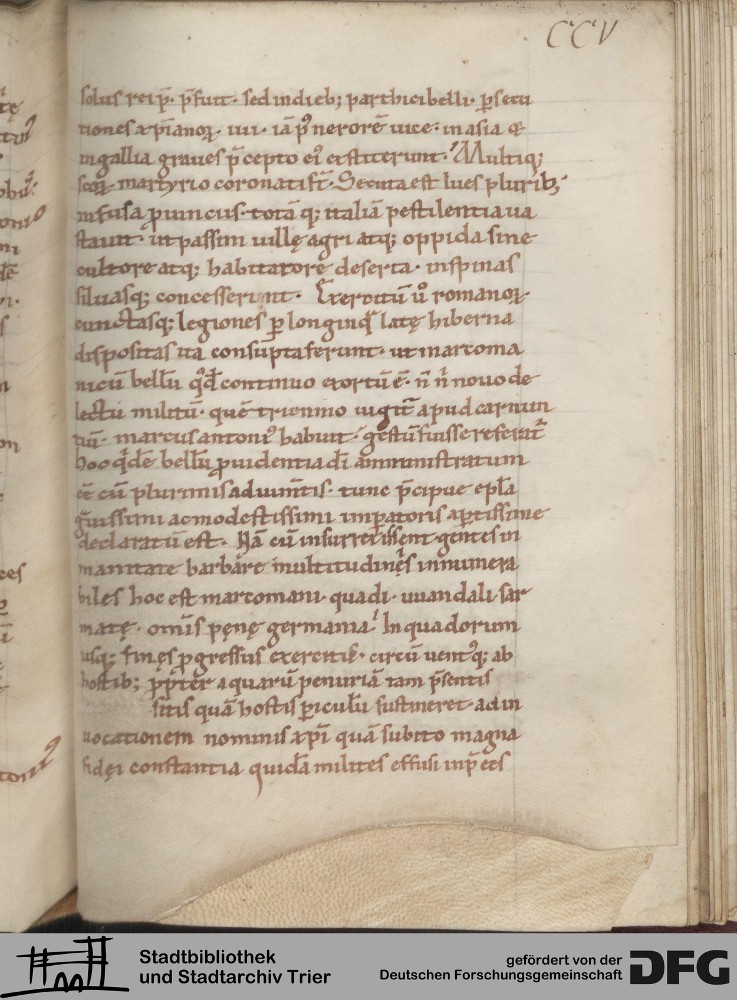 CCV
solus rei p̄. p̄fuit. sed in dieb; parthici belli. p̱secu
tiones xp̄ianoꝝ. iiii. iā pꝰ neronē uice. in asia &
in gallia graues p̄cepto eiꝰ extiterunt. Multiq;
scōꝝ martyrio coronati st̄. Secuta est lues plurib;
infusa ꝓuinciis. totā q; italiā pestilentia ua
stauit. ut passim uillę agri atq; oppida sine
cultore atq; habitatore deserta. in spinas
siluasq; concesserint. Exercitū ū romanoꝝ
cunctasq; legiones ꝑ longinq̄ latę hiberna
dispositas ita consūptas ferunt. ut marcoma
nicū bellū qd̄ continuo exortū ē. n̄ n̄ nouo de
lectu militū. quē triennio iugit̄ apud carnun
tiū. marcus antoniꝰ habuit. gestū fuisse referat̄
hoc qd̄ē bellū ꝓuidentia dī amministratum
ēē cū plurimis adum̄tis. tunc p̄cipue epl̄a
ḡuissimi ac modestissimi imꝑatoris aꝑtissime
declaratū est. Nā cū insurrexissent gentes in
manitate barbare multitudinęs innumera
biles hoc est marcomani. quadi. uuandali. sar
matę. om̄is penę germania. In quadorum
usq; finęs ꝓgressus exercitꝰ. circūuentꝰq; ab
hostib; ꝓpter aquarū penuriā tam p̄sentis
sitis quā hostis ꝑiculū sustineret. ad in
uocationem nominis xp̄i quā subito magna
fidęi constantia quidā milites effusi in p̄ces
Stadtbibliothek
und Stadtarchiv Trier
gefördert von der
Deutschen Forschungsgemeinschaft
DFG